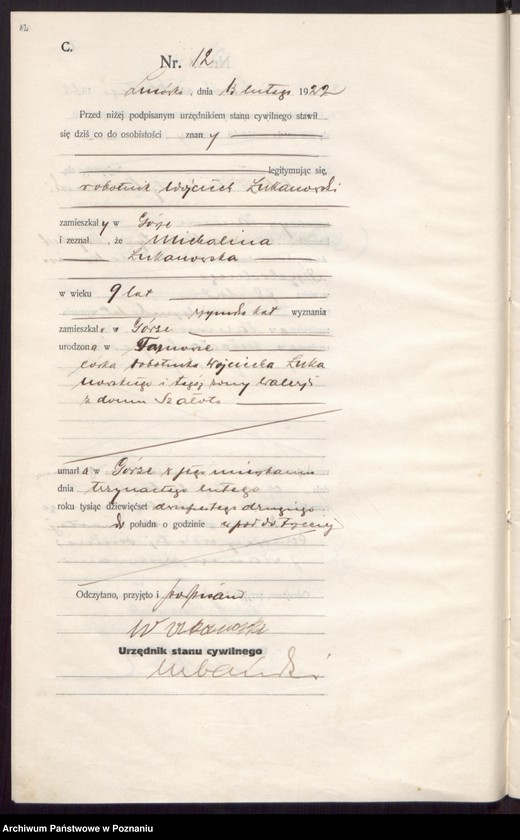 C.
Nr. 12
, dnia 13 lutego 1922
Przed niżej podpisanym urzędnikiem stanu cywilnego stawił
się dziś co do osobistości znany
legitymując się,
robotnik Wojciech Łukanowski
zamieszkały w Górze
i zeznał, że Michalina
Łukanowska
w wieku 9 lat
rzymsko kat wyznania
zamieszkała w Górze
urodzona w
córka robotnika Wojciecha Łuka
nowskiego i tegoż żony Waleryi
z domu Szalota
umarła w Górze w jego mieszkaniu
dnia trzynastego lutego
roku tysiąc dziewięćset dwudziestego drugiego
do połudn. o godzinie w pół do trzeciej
Odczytano, przyjęto i podpisano
W Łukanowski
Urzędnik stanu cywilnego
Urbański
Archiwum Państwowe w Poznaniu